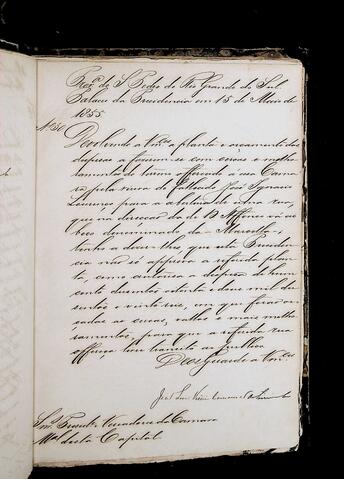 Prov.ª de S. Pedro do Rio Grande do Sul
Palacio da Presidencia em 15 de Maio de
1855
N.º 30
Devolvendo a Vm.ces a planta e orçamento das
despesas a fazerem-se com e melho-
ramentos terreno offerecido á essa Cama-
ra pela viuva do fallecido José Ignacio
Lourenço para a abertura de uma rua,
que na direcção da de D. Affonso vá ao
beco denominado do - Marcello -;
tenho a dizer-lhes que esta Presiden-
cia não só approva a referida plan-
ta, como autorisa a despesa de hum
conto duzentos oitenta e dous mil du-
sentos e vinte reis, em que forão or-
çadas as e mais melho-
ramentos, para que a referida rua
offereça livre transito ao publico.
Deos Guarde a Vm.ces
Snr.es Presid.e e Vereadores da Camara
M.al desta Capital